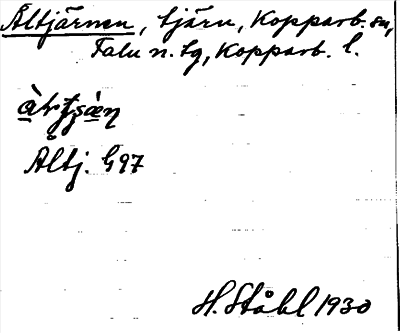 Åltjärnen, tjärn, Kopparb. sn,
Falu n. tg, Kopparb. l.
Åltj. G97
H. Ståhl 1930